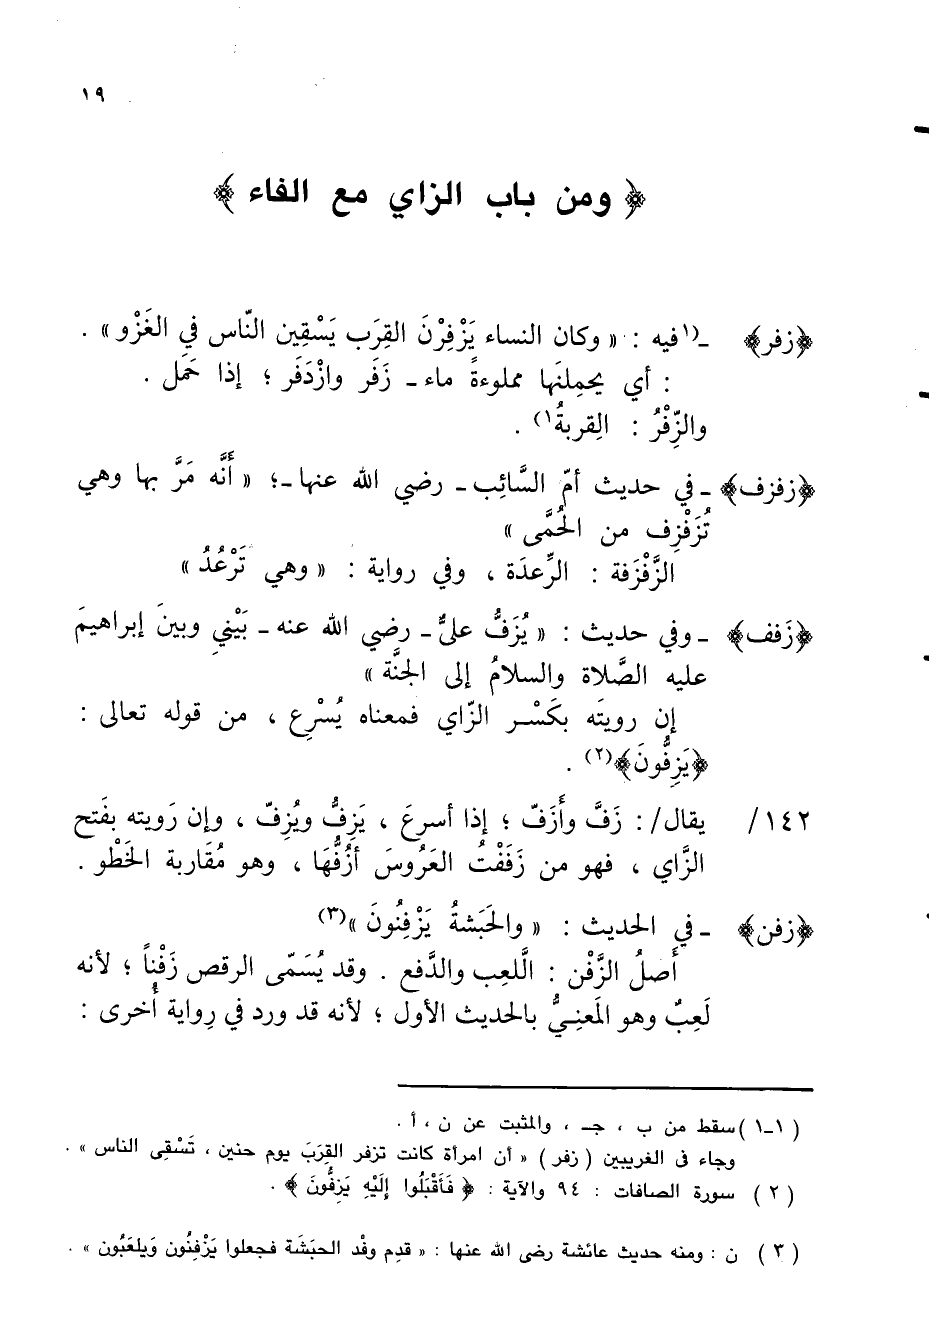 ١٩
﴿ ومن باب الزاي مع الفاء ﴾
﴿زفر﴾ ـ(١فيه : « وكان النساء يَزْفِرْنَ القِرَب يَسْقِين النّاس في الغَزْو » .
: أي يحمِلنَها مملوءةً ماء ـ زَفَر وازْدَفَر ؛ إذا حَمَل .
والزِّفْرُ : القِربةُ١) .
﴿زفزف﴾ ـ في حديث أمّ السَّائِب ـ رضي الله عنها ـ؛ « أَنَّه مَرَّ بها وهي
تُزَفْزِف من الحُمَّى »
الزَّفْزَفة : الرِّعدَة ، وفي رواية : « وهي تَرْعُدُ »
﴿زَفف﴾ ـ وفي حديث : « يُزَفُّ عليٌّ ـ رضي الله عنه ـ بَيْنِي وبينَ إبراهيمَ
عليه الصَّلاة والسلامُ إلى الجنَّة »
إن رويتَه بكَسْر الزّاي فمعناه يُسْرِع ، من قوله تعالى :
﴿يَزِفُّونَ﴾(٢) .
١٤٢/ يقال/ : زَفَّ وأَزَفّ ؛ إذا أسرعَ ، يَزِفُّ ويُزِفّ ، وإن رَويته بفَتح
الزَّاي ، فهو من زَفَفْتُ العَرُوسَ أزُفُّهَا ، وهو مُقَاربة الخَطْو .
﴿زفن﴾ ـ في الحديث : « والحَبَشةُ يَزْفِنُونَ »(٣)
أَصلُ الزَّفْن : الَّلعِب والدَّفع . وقد يُسَمّى الرقص زَفْناً ؛ لأنه
لَعِبٌ وهو المَعنِيُّ بالحديث الأول ؛ لأنه قد ورد في رِواية أُخرى :
(١ـ١) سقط من ب ، جـ ، والمثبت عن ن ، أ .
وجاء فى الغريبين ( زفر ) « أن امرأة كانت تزفر القِرَبَ يوم حنين ، تَسْقِى الناس » .
(٢) سورة الصافات : ٩٤ والآية : ﴿ فَأَقْبَلُوا إِلَيْهِ يَزِفُّونَ ﴾ .
(٣) ن : ومنه حديث عائشة رضى الله عنها : « قدِم وفْد الحبَشَة فجعلوا يَزْفِنُون وَيلعَبُون » .